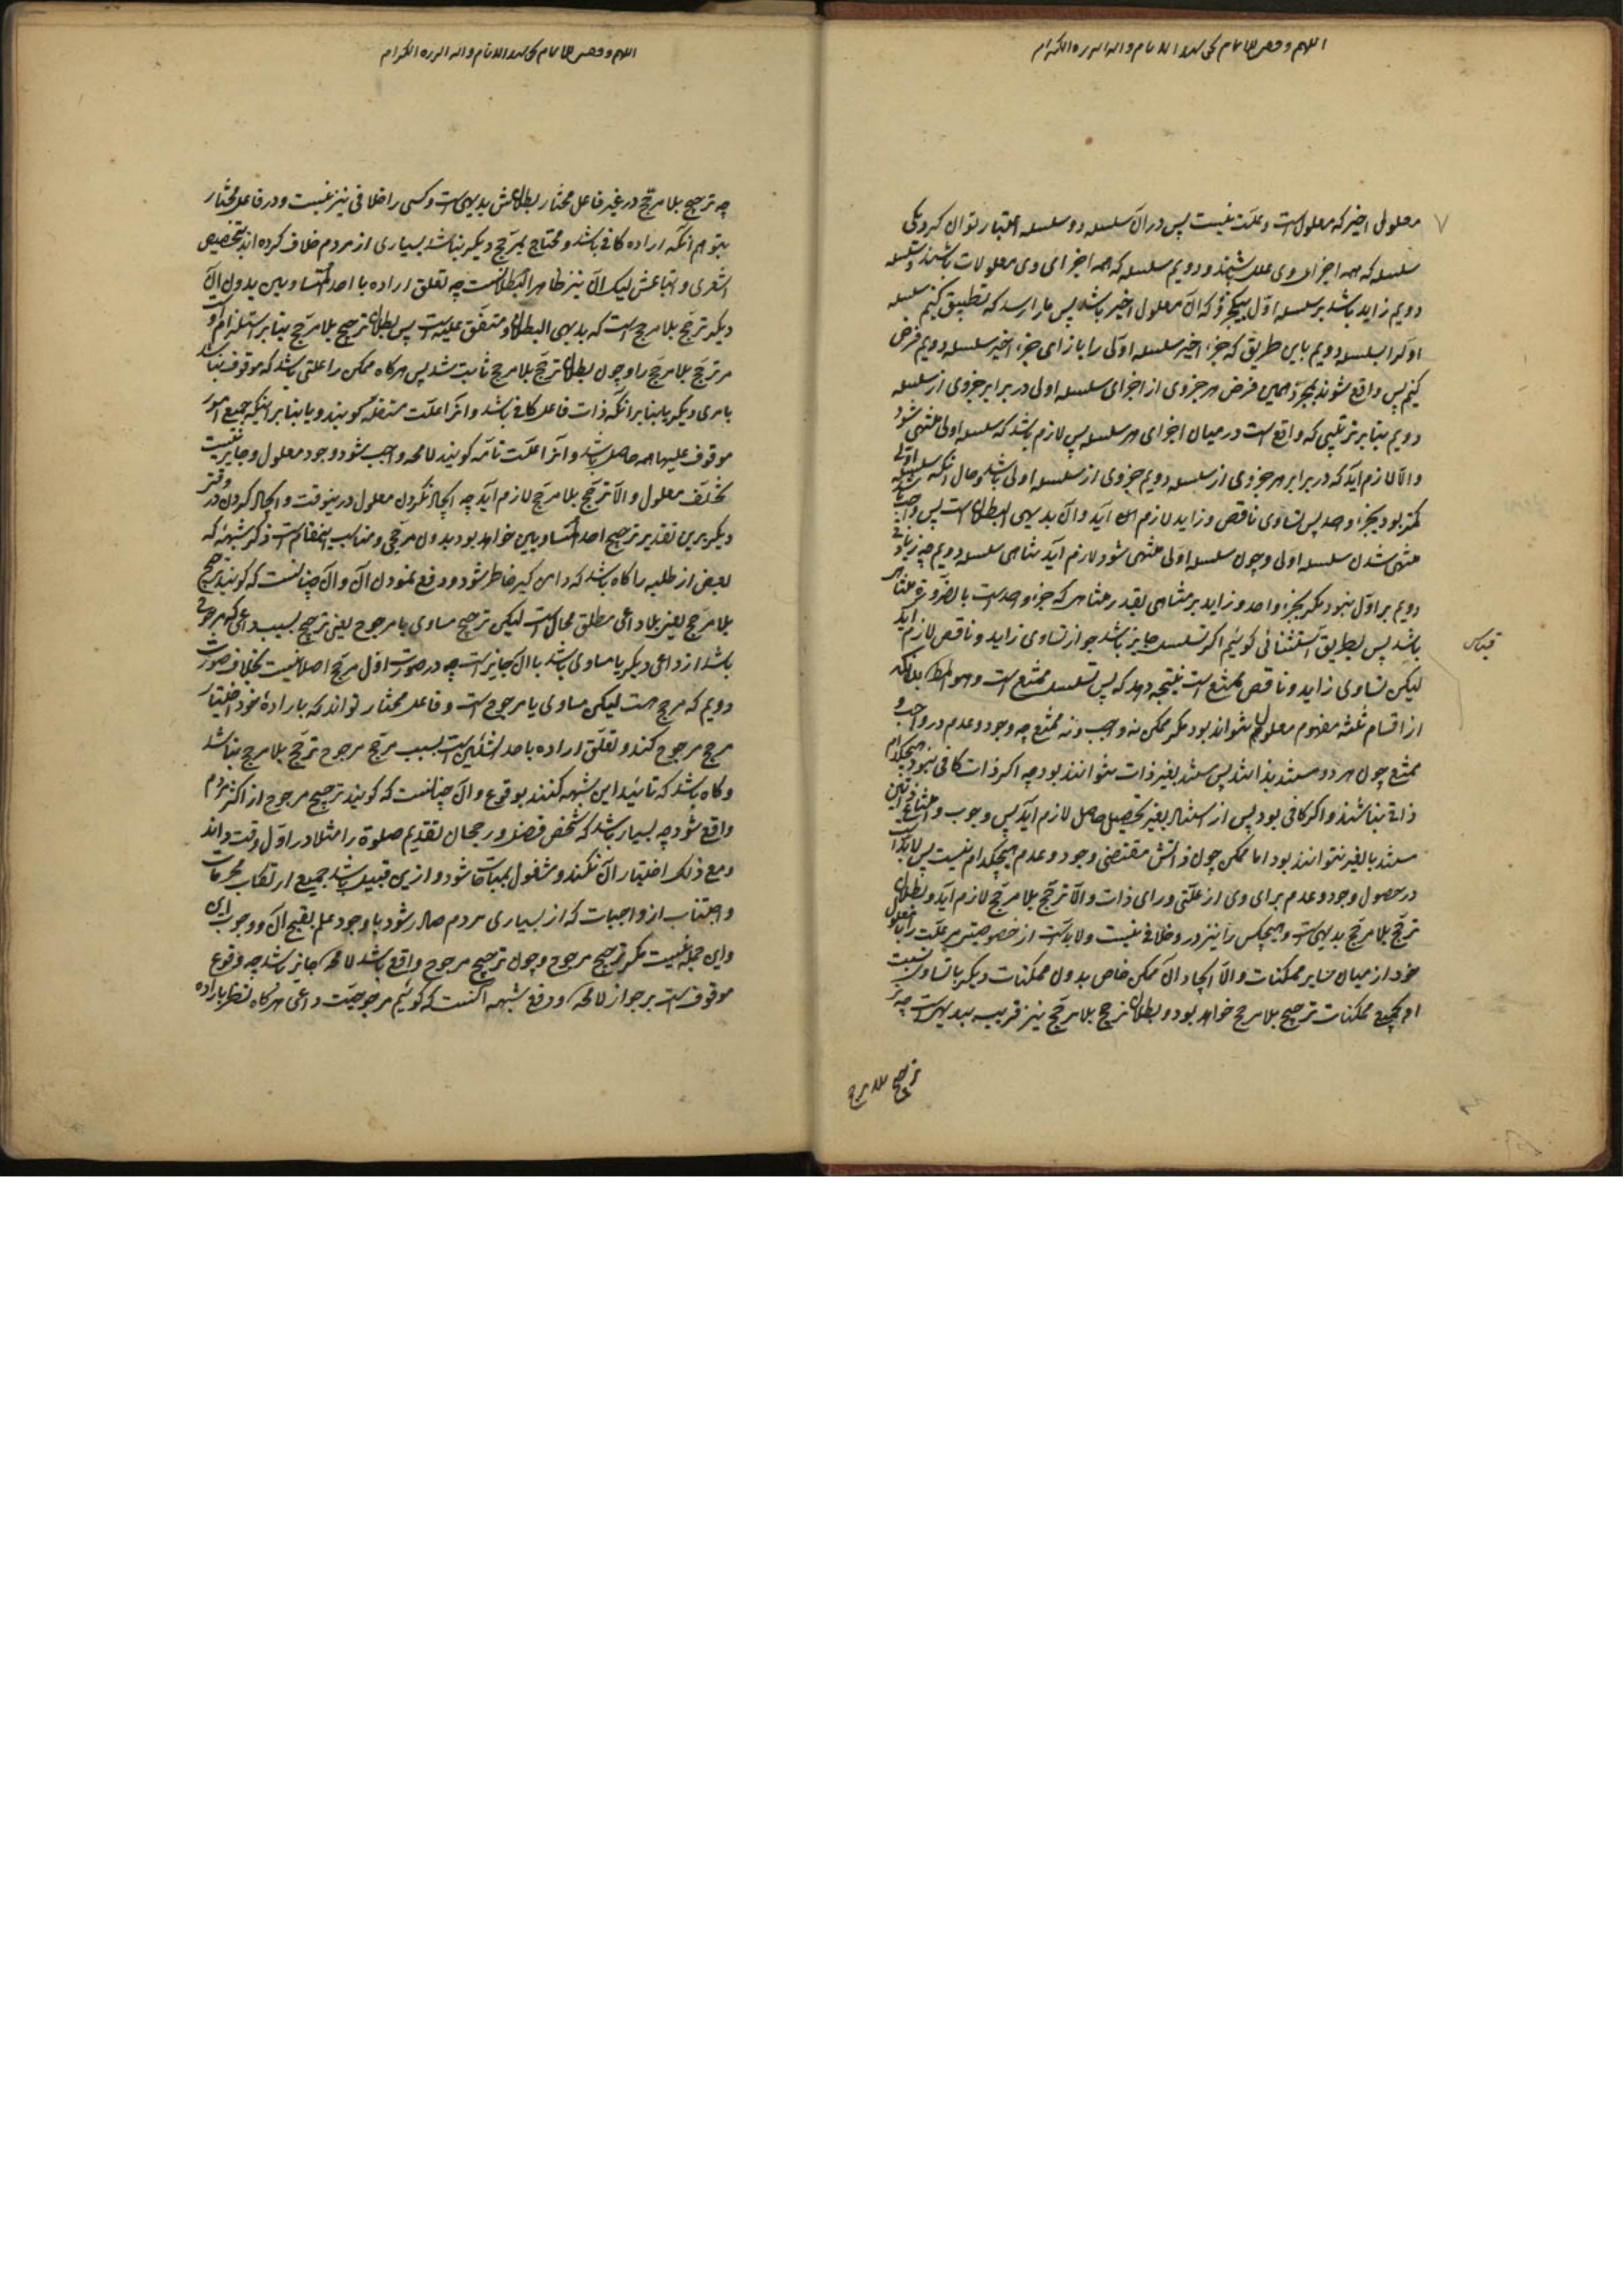 معلول اخیر که معلولست و علّت نیست پس در آن سلسله دو سلسله اعتبار توان کرد یکی
سلسله که همه اجزای وی علل باشند و دویم سلسله که همه اجزای وی معلولات باشند و سلسله
دویم زاید باشد بر سلسله اوّل بیکجزو که آن معلول اخیر باشد پس ما را رسد که تطبیق کنیم سلسله
اولی را بسلسله دویم باین طریق که جزء اخیر سلسله اولی را بازای جزء اخیر سلسله دویم فرض
کنیم پس واقع شود بمجرّد همین فرض هر جزوی از اجزای سلسله اولی در برابر جزوی از سلسله
دویم بنابر ترتیبی که واقع است در میان اجزای هر سلسله پس لازم باشد که سلسله اولی منتهی شود
والّا لازم آید که در برابر هر جزوی از سلسله دویم جزوی از سلسله اولی باشد و حال آنکه سلسله اولی
کمتر بود بجزء واحد پس تساوی ناقص و زاید لازم آید و آن بدیهی البطلان است پس واجب باشد
منتهی شدن سلسله اولی و چون سلسله اولی منتهی شود لازم آید تناهی سلسله دویم چه زیادتی
دویم بر اوّل نبود مگر بجزء واحد و زاید بر متناهی بقدر متناهی که جزء واحد است بالضّروره متناهی
باشد پس بطریق استثنائی گوئیم اگر تسلسل جایز باشد جواز تساوی زاید و ناقص لازم آید
لیکن تساوی زاید و ناقص ممتنع است نتیجه دهد که پس تسلسل ممتنع است و هو المطلوب بدانکه
از اقسام ثلثه مفهوم معلول نتواند بود مگر ممکن نه واجب و نه ممتنع چه وجود و عدم در واجب و
ممتنع چون هر دو مستند بذاتند پس مستند بغیر ذات نتوانند بود چه اگر ذات کافی نبود هیچکدام
ذاتی نباشند و اگر کافی بود پس از استناد بغیر تحصیل حاصل لازم آید پس وجوب و امتناع ذاتیین
مستند بالغیر نتوانند بود اما ممکن چون ذاتش مقتضی وجود و عدم هیچکدام نیست پس لابدّ است
در حصول وجود و عدم برای وی از علّتی ورای ذات والّا ترجّح بلا مرجّح لازم آید و بطلان
ترجّح بلا مرجّح بدیهی است و هیچکس را نیز در او خلافی نیست و لابد است از خصوصیتی مر علّت را با معلول
خود از میان سایر ممکنات والّا ایجاد آن ممکن خاص بدون ممکنات دیگر با تساوی نسبت
او بجمیع ممکنات ترجیح بلا مرجح خواهد بود و بطلان ترجیح بلا مرجّح نیز قریب ببدیهی است چه
ترجیح بلا مرجح
قیاس
چه ترجیح بلا مرجّح در غیر فاعل مختار بطلانش بدیهی است و کسی را خلافی نیز نیست و در فاعل مختار
بتوهم آنکه اراده کافی باشد و محتاج بمرجّح دیگر نباشد بسیاری از مردم خلاف کرده‌اند بتخصیص
اشعری و اتباعش لیکن آن نیز ظاهر البطلانست چه تعلّق اراده باحد المتساویین بدون آن
دیگر ترجّح بلا مرجح است که بدیهی البطلان و متفق علیه است پس بطلان ترجیح بلا مرجّح بنابر استلزام اوست
مر ترجّح بلا مرجّح را و چون بطلان ترجّح بلا مرجح ثابت شد پس هرگاه ممکن را علّتی باشد که موقوف نباشد
بامری دیگر یا بنا بر آنکه ذات فاعل کافی باشد و آنرا علّت مستقلّه گویند و یا بنا بر اینکه جمیع امور
موقوف علیها همه حاصل باشد و آنرا علّت تامّه گویند لامحاله واجب شود وجود معلول و جایز نیست
تخلّف معلول والّا ترجّح بلا مرجّح لازم آید چه ایجاد نکردن معلول در ینوقت و ایجاد کردن در وقتی
دیگر برین تقدیر ترجیح احد المتساویین خواهد بود بدون مرجّحی و مناسب اینمقام است ذکر شبهه که
بعض از طلبه را گاه باشد که دامن گیر خاطر شود و دفع نمودن آن و آن چنانست که گویند ترجیح
بلا مرجّح یعنی بلا داعی مطلق محال است لیکن ترجیح مساوی یا مرجوح یعنی ترجیح بسبب داعی که مرجوح
باشد از داعی دیگر یا مساوی باشد با آن جایز است چه در صورت اوّل مرجّح اصلا نیست بخلاف صورت
دویم که مرجح هست لیکن مساوی یا مرجوح است و فاعل مختار تواند که باراده خود اختیار
مرجح مرجوح کند و تعلّق اراده باحد الشیئین است بسبب مرجّح مرجوح ترجّح بلا مرجح نباشد
و گاه باشد که تائید این شبهه کنند بوقوع و آن چنانست که گویند ترجیح مرجوح از اکثر مردم
واقع شود چه بسیار باشد که شخص فضل و رجحان تقدیم صلوة را مثلا در اوّل وقت داند
و مع ذلک اختیار آن نکند و مشغول بمباحات شود و از این قبیل باشد جمیع ارتکاب محرمات
و اجتناب از واجبات که از بسیاری مردم صادر شود با وجود علم بقبح آن و وجوب این
و این جمله نیست مگر ترجیح مرجوح و چون ترجیح مرجوح واقع باشد لامحاله جایز باشد چه وقوع
موقوف است بر جواز لامحاله و دفع شبهه آنست که گوئیم مرجوحیّت داعی هرگاه نظر باراده